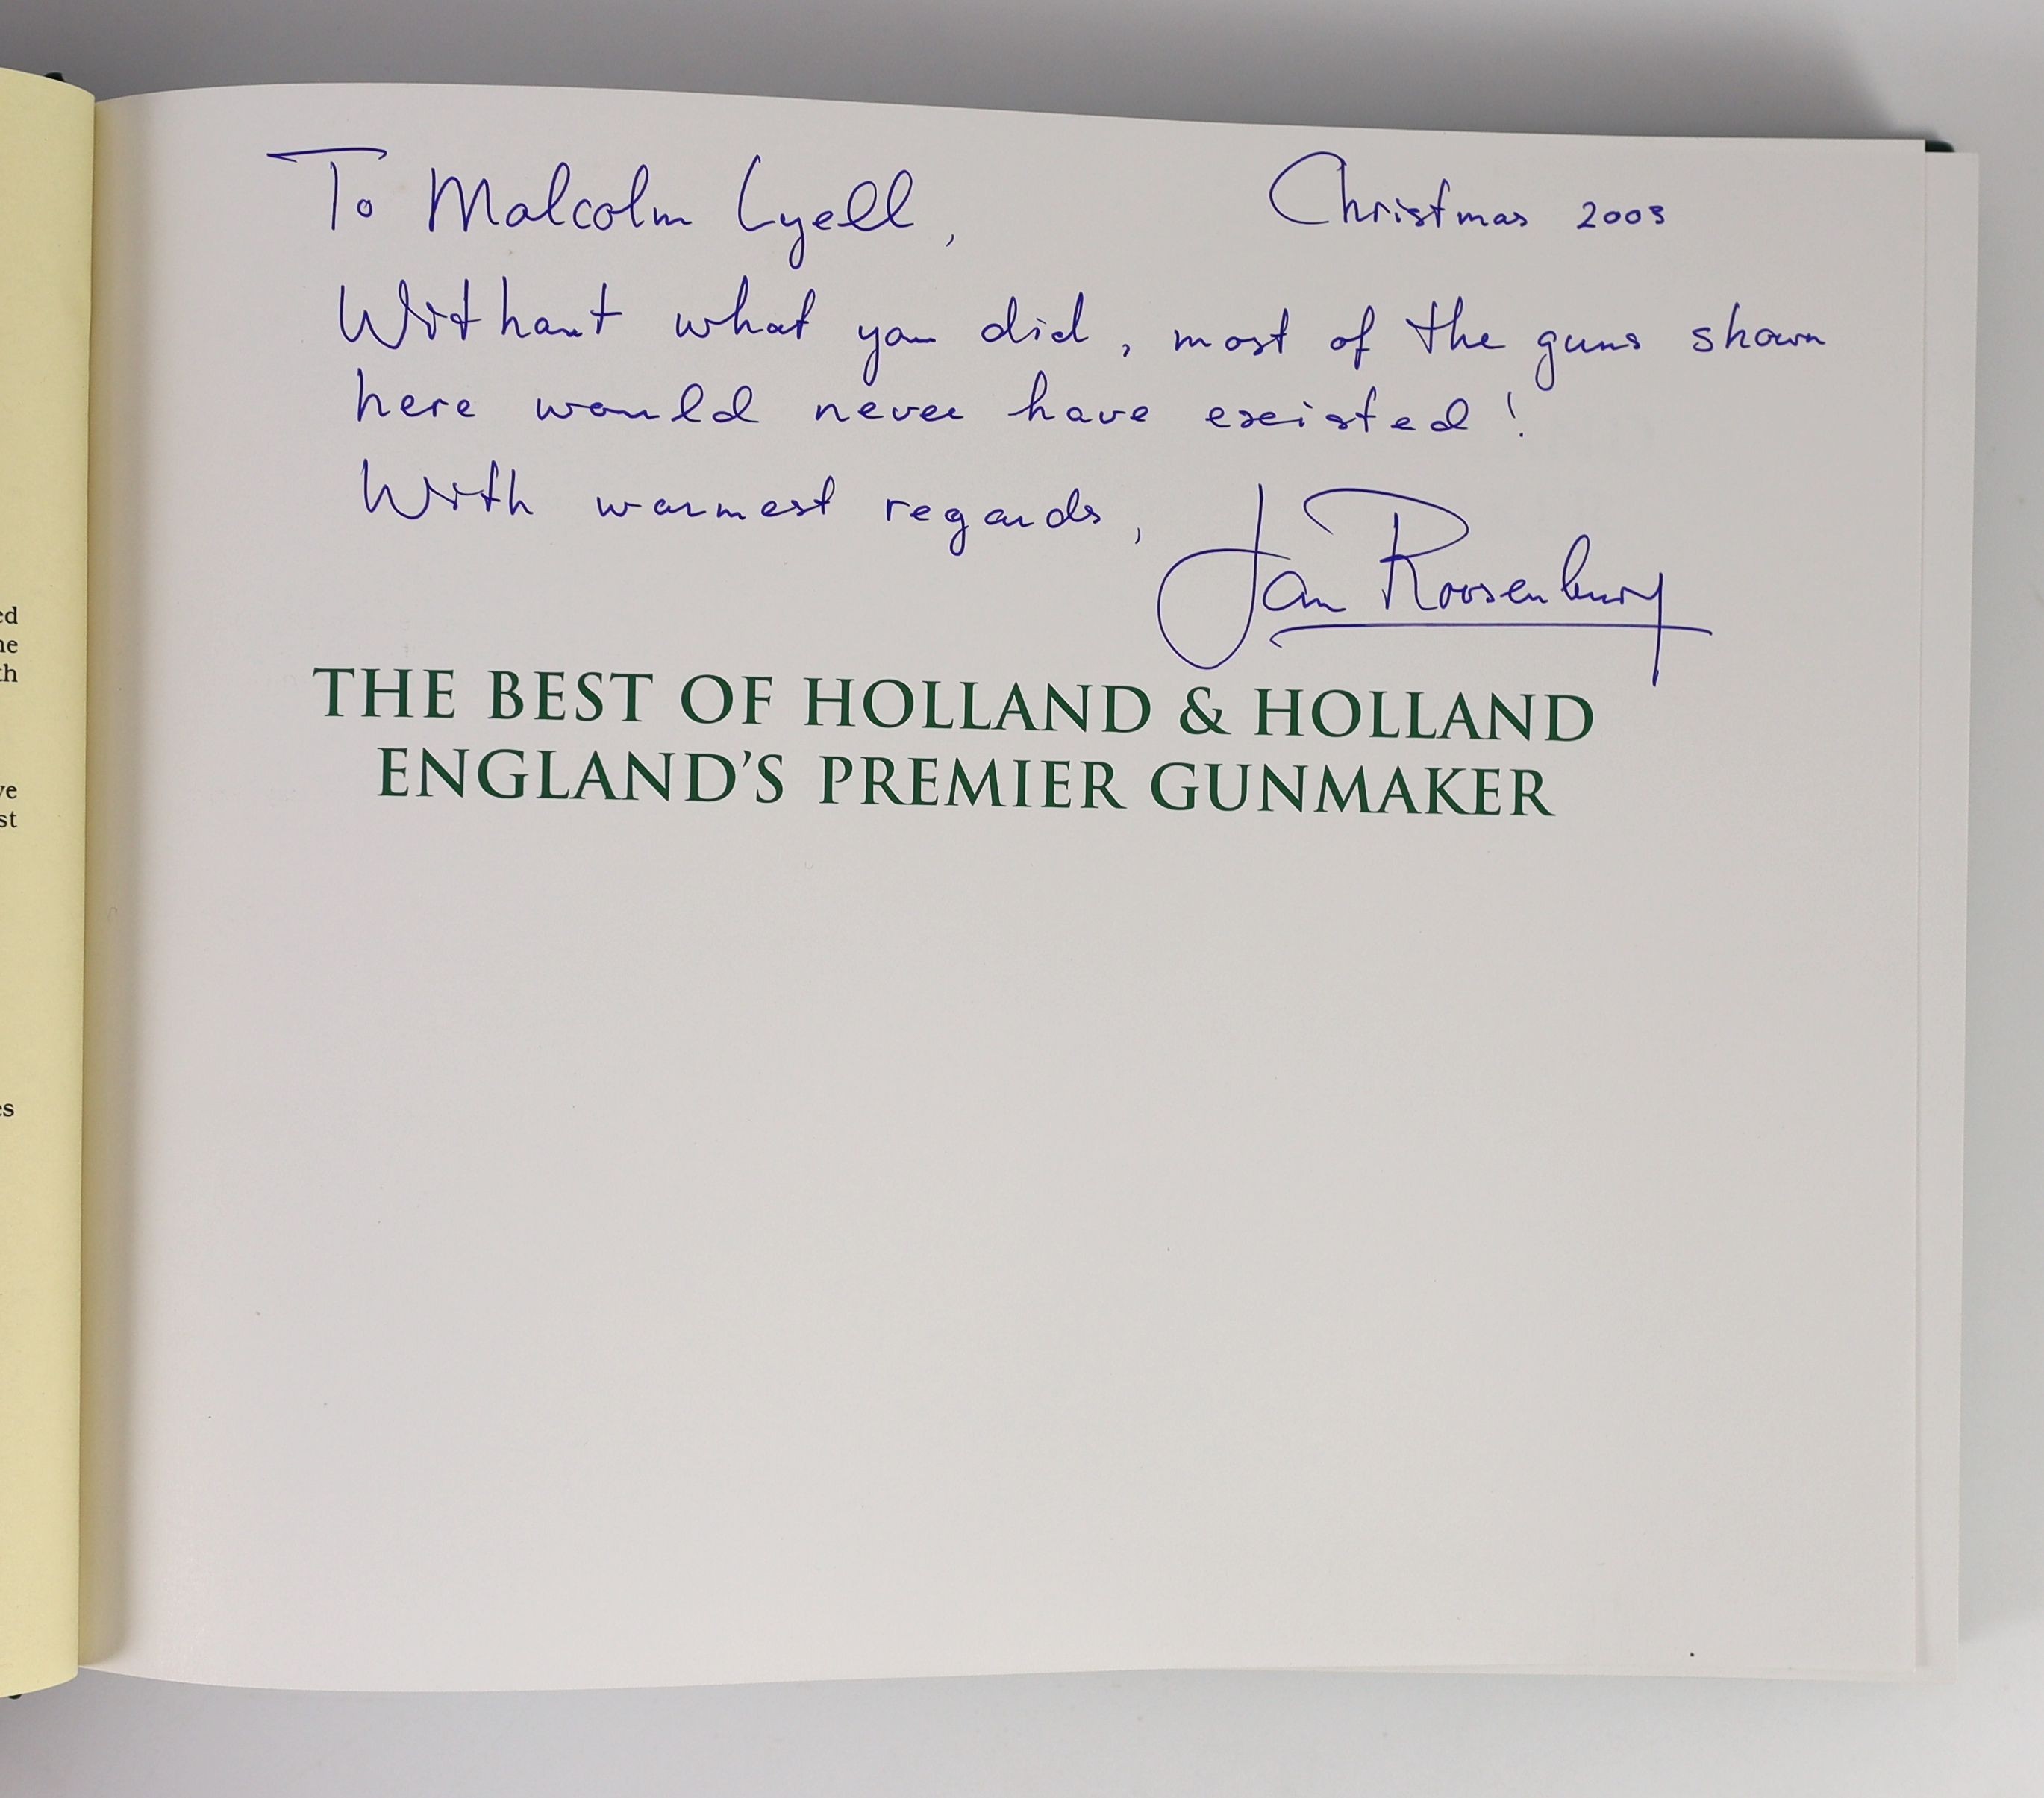 ed
ne
th
ve
st
es
To Malcolm Lyell, Christmas 2003
Without what you did, most of the guns shown
here would never have existed!
With warmest regards,
Jan Roosenburg
THE BEST OF HOLLAND & HOLLAND
ENGLAND'S PREMIER GUNMAKER